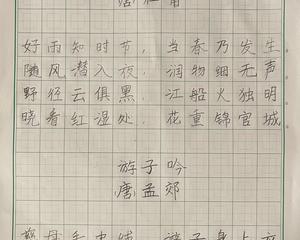 好雨知时节，当春乃发生
随风潜入夜，润物细无声
野径云俱黑，江船火独明
晓看红湿处，花重锦官城
游子吟
唐孟郊